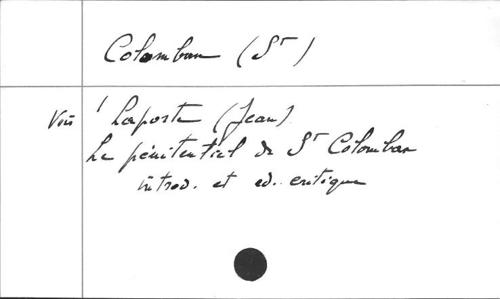 Colomban (St)
Voir Laporte (Jean)
Le pénitentiel de St Colomban
introd. et ed. critique